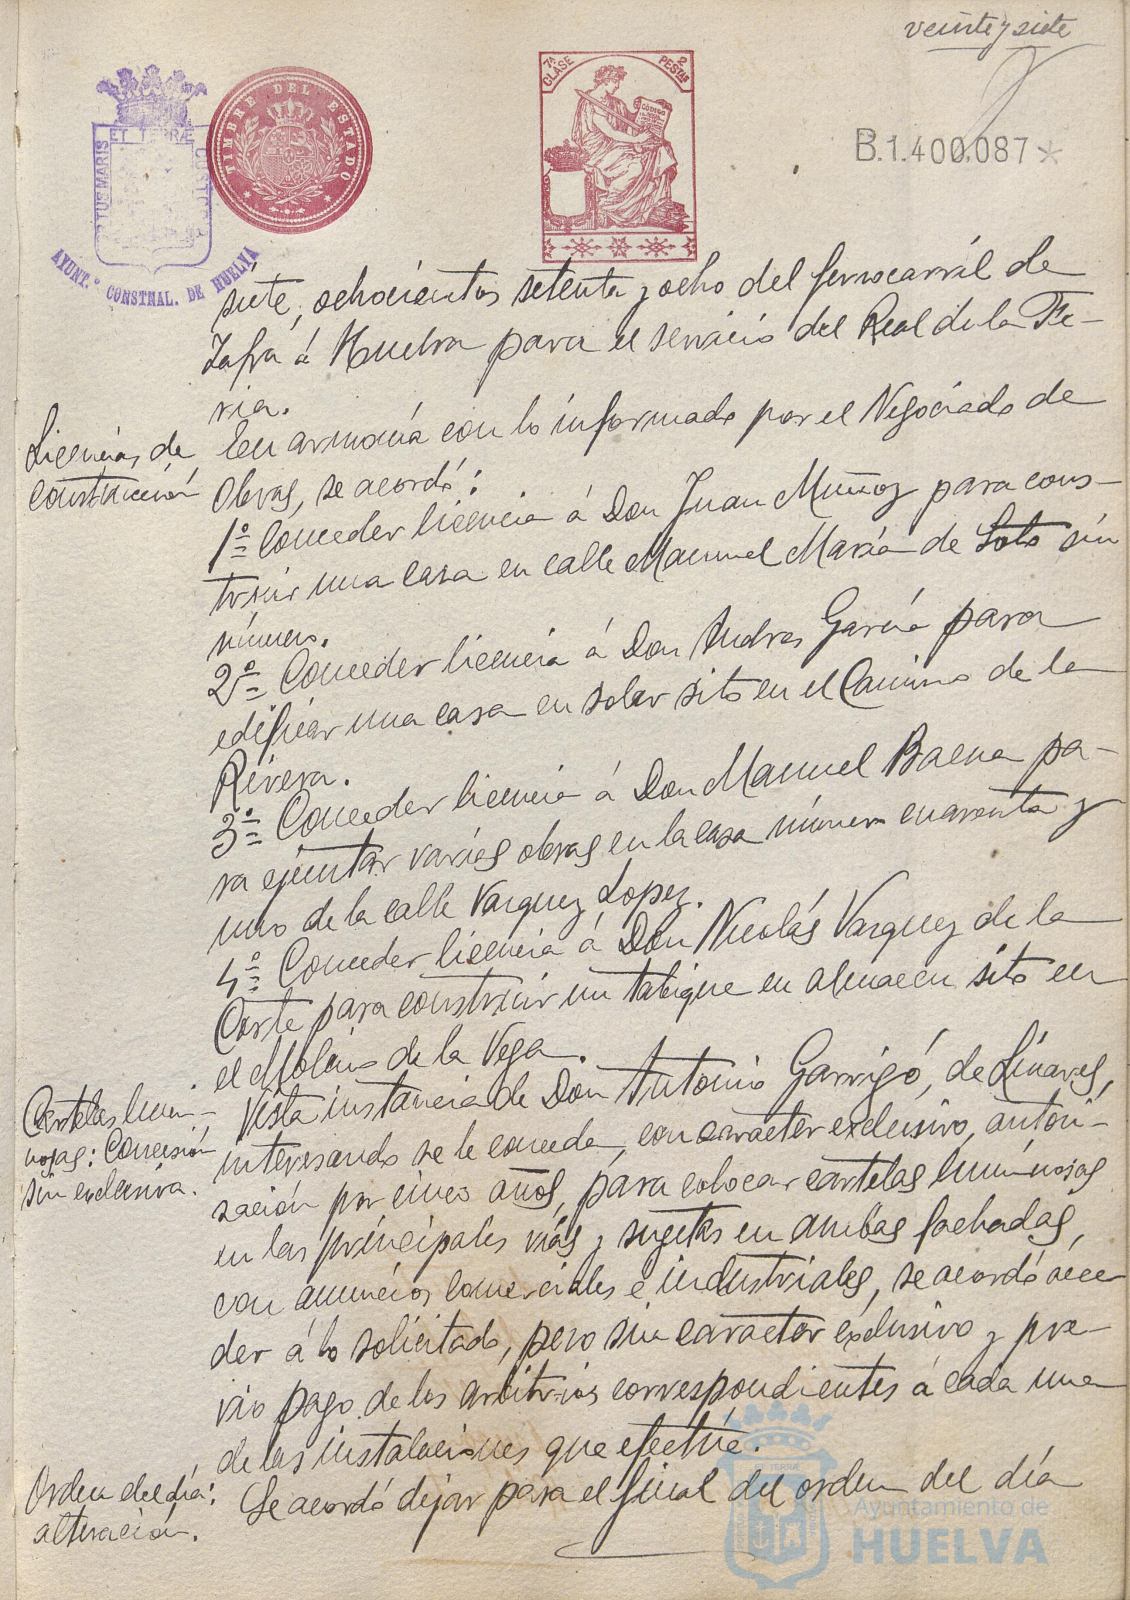 veinte y siete
ET TERRÆ
TUS MARIS
CUSTO
AYUNT.º CONSTNAL. DE HUELVA
TIMBRE DEL ESTADO
7ª CLASE
2 PESTAS
CODIGO
B.1.400.087*
siete, ochocientos setenta y ocho del ferrocarril de
Zafra á Huelva para el servicio del Real de la Fe-
ria.
Licencias de
construcción
En armonía con lo informado por el Negociado de
Obras, se acordó:
1º Conceder licencia á Don Juan Muñoz para cons-
truir una casa en calle Manuel María de Soto sin
número.
2º Conceder licencia á Don Andres García para
edificar una casa en solar sito en el Camino de la
Rivera.
3º Conceder licencia á Don Manuel Baena pa-
ra ejecutar varias obras en la casa número cuarenta y
uno de la calle Vazquez Lopez.
4º Conceder licencia á Don Nicolás Vazquez de la
Corte para construir un tabique en almacen sito en
el Molino de la Vega.
Cartelas lumi-
nosas: Concesión
sin exclusiva.
Vista instancia de Don Antonio Garrigó, de Linares,
interesando se le conceda, con caracter exclusivo, autori-
zación por cinco años, para colocar cartelas luminosas
en las principales vías y sujetas en ambas fachadas,
con anuncios comerciales e industriales, se acordó acce
der á lo solicitado, pero sin caracter exclusivo y pre-
vio pago de los arbitrios correspondientes á cada una
de las instalaciones que efectúe.
Orden del día:
alteración.
Se acordó dejar para el final del orden del día
Ayuntamiento de
HUELVA